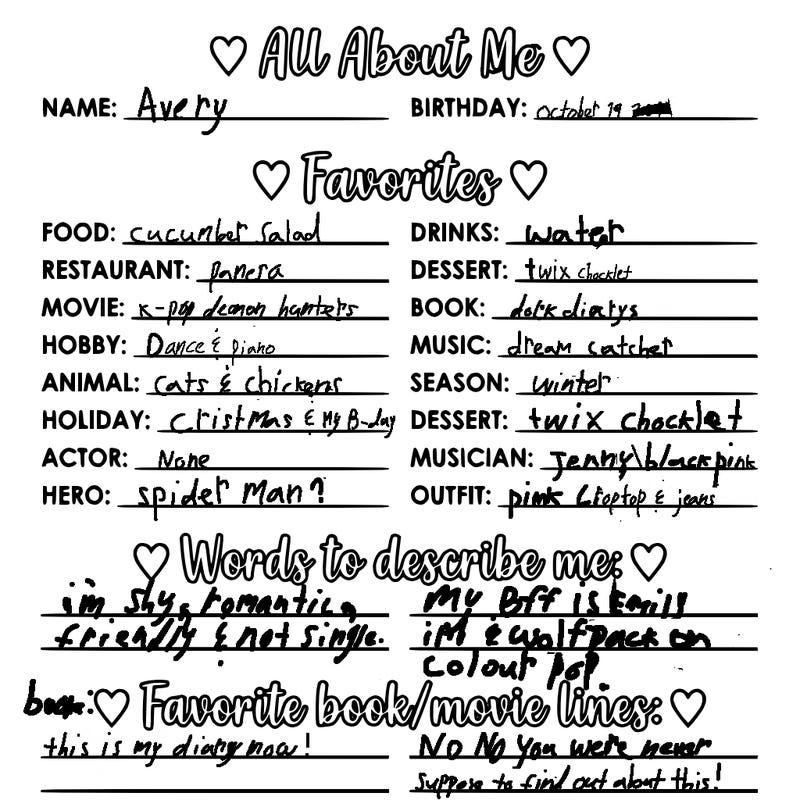 All About Me
NAME: Avery BIRTHDAY: october 19
Favorites
FOOD: cucumber salad DRINKS: water
RESTAURANT: panera DESSERT: twix chocklet
MOVIE: K-pop demon hunters BOOK: dork diarys
HOBBY: Dance & piano MUSIC: dream catcher
ANIMAL: cats & chickens SEASON: winter
HOLIDAY: Cristmas & My B-day DESSERT: twix chocklet
ACTOR: None MUSICIAN: Jenny\blackpink
HERO: spider Man? OUTFIT: pink Croptop & jeans
Words to describe me:
i'm shy, romantic, My Bff is Emily
friendly & not single. iM & wolfpack on
colour pop
book: Favorite book/movie lines:
this is my diary now! No No You were never
suppose to find out about this!